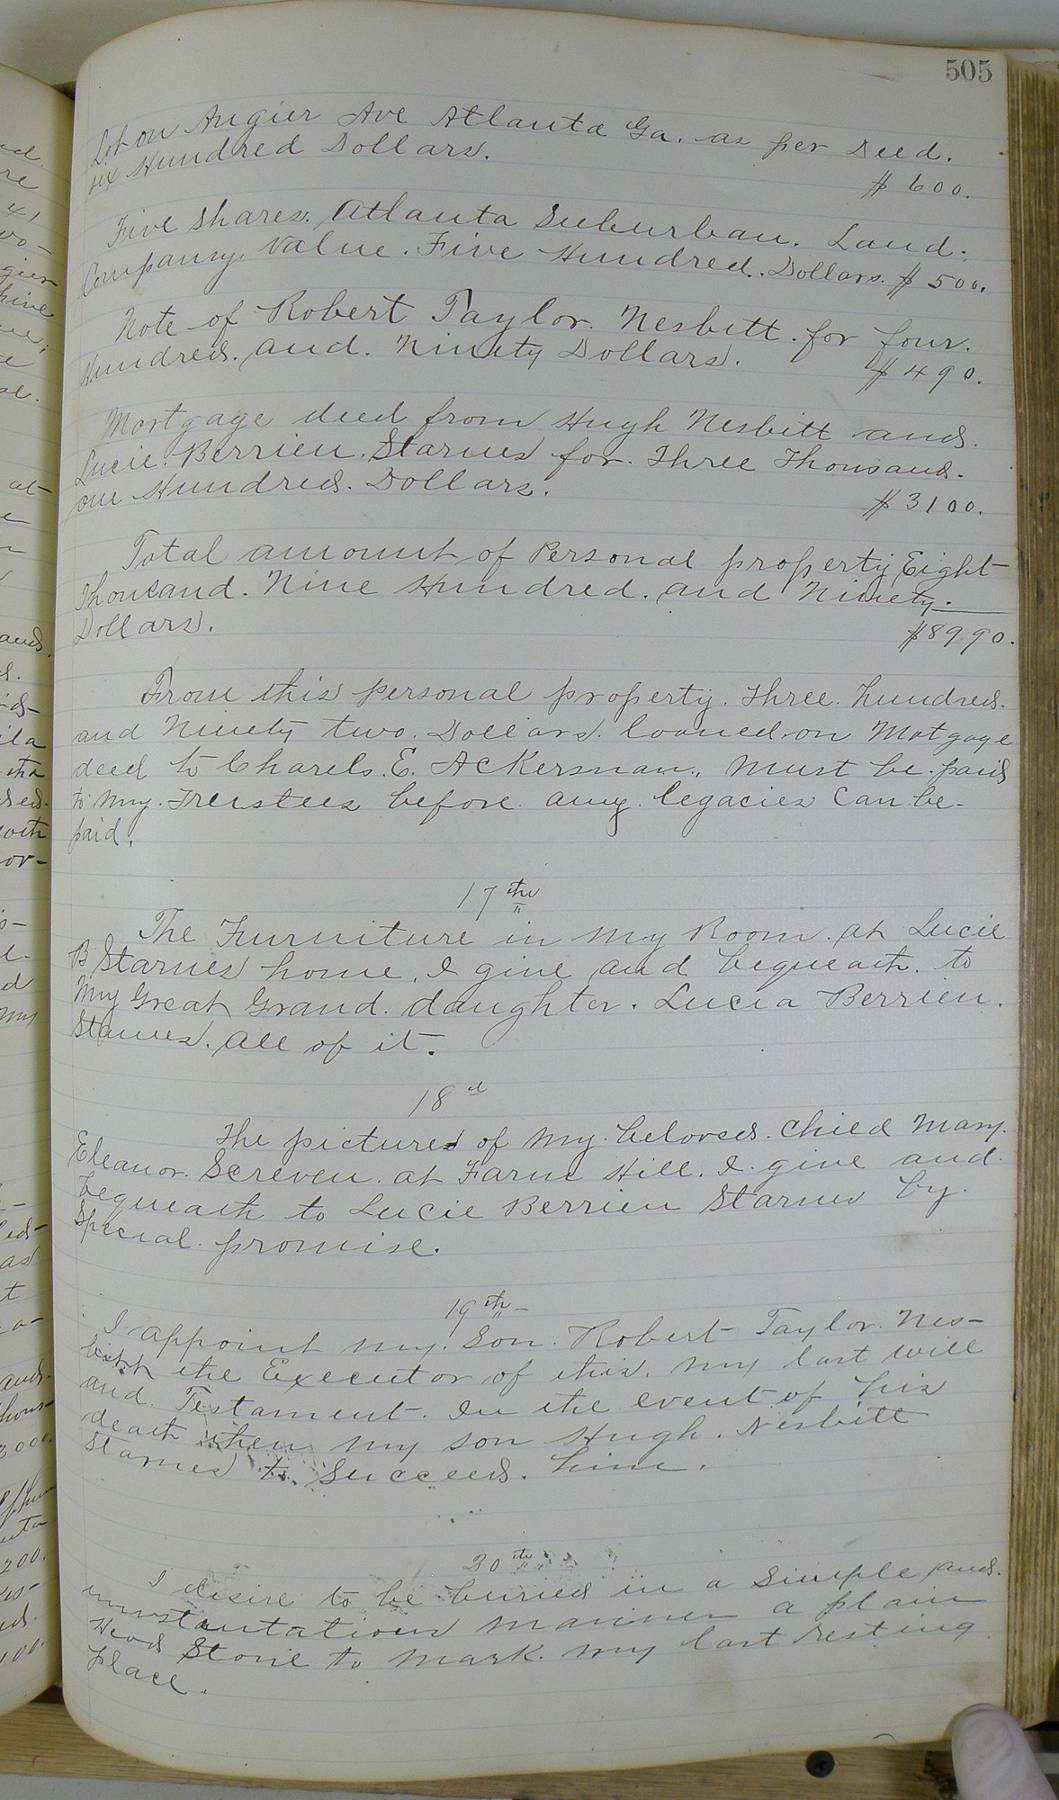 505
Lot on Angier Ave Atlanta Ga. as per Deed.
six Hundred Dollars.
$600.
Five shares. Atlanta Suburban. Land.
Company. Value. Five Hundred. Dollars. $500.
Note of Robert Taylor. Nesbitt. for four.
Hundred. and. Ninety Dollars.
$490.
Mortgage deed from Hugh Nesbitt and.
Lucie. Berrien. Starnes for. Three Thousand.
one Hundred. Dollars.
$3100.
Total amount of Personal property Eight
Thousand. Nine Hundred. and Ninety.
Dollars.
$8990.
From this personal property. Three. hundred.
and Ninety two. Dollars. loaned on Motgage
deed to Charels. E. Ackersman., must be. paid
to my. Trustees before any legacies can be-
paid.
17th
The Furniture in my Room. at Lucie
B. Starnes home, I give and bequeath. to
My Great Grand. daughter. Lucia Berrien.
Starnes. all of it.
18th
The pictures of my. beloved. child Mary.
Eleanor. Screven. at Farm Hill. I. give and.
bequeath to Lucie Berrien Starnes by.
Special. promise.
19th-
I appoint my. Son. Robert Taylor. Nes-
bitt the Executor of this. my last will
and. Testament. In the event of his
death then my son Hugh. Nesbitt
Starnes to Succeed. him.
20th
I desire to be buried in a simple and.
unostentatious manner a plain
Head Stone to mark. my last resting
place.